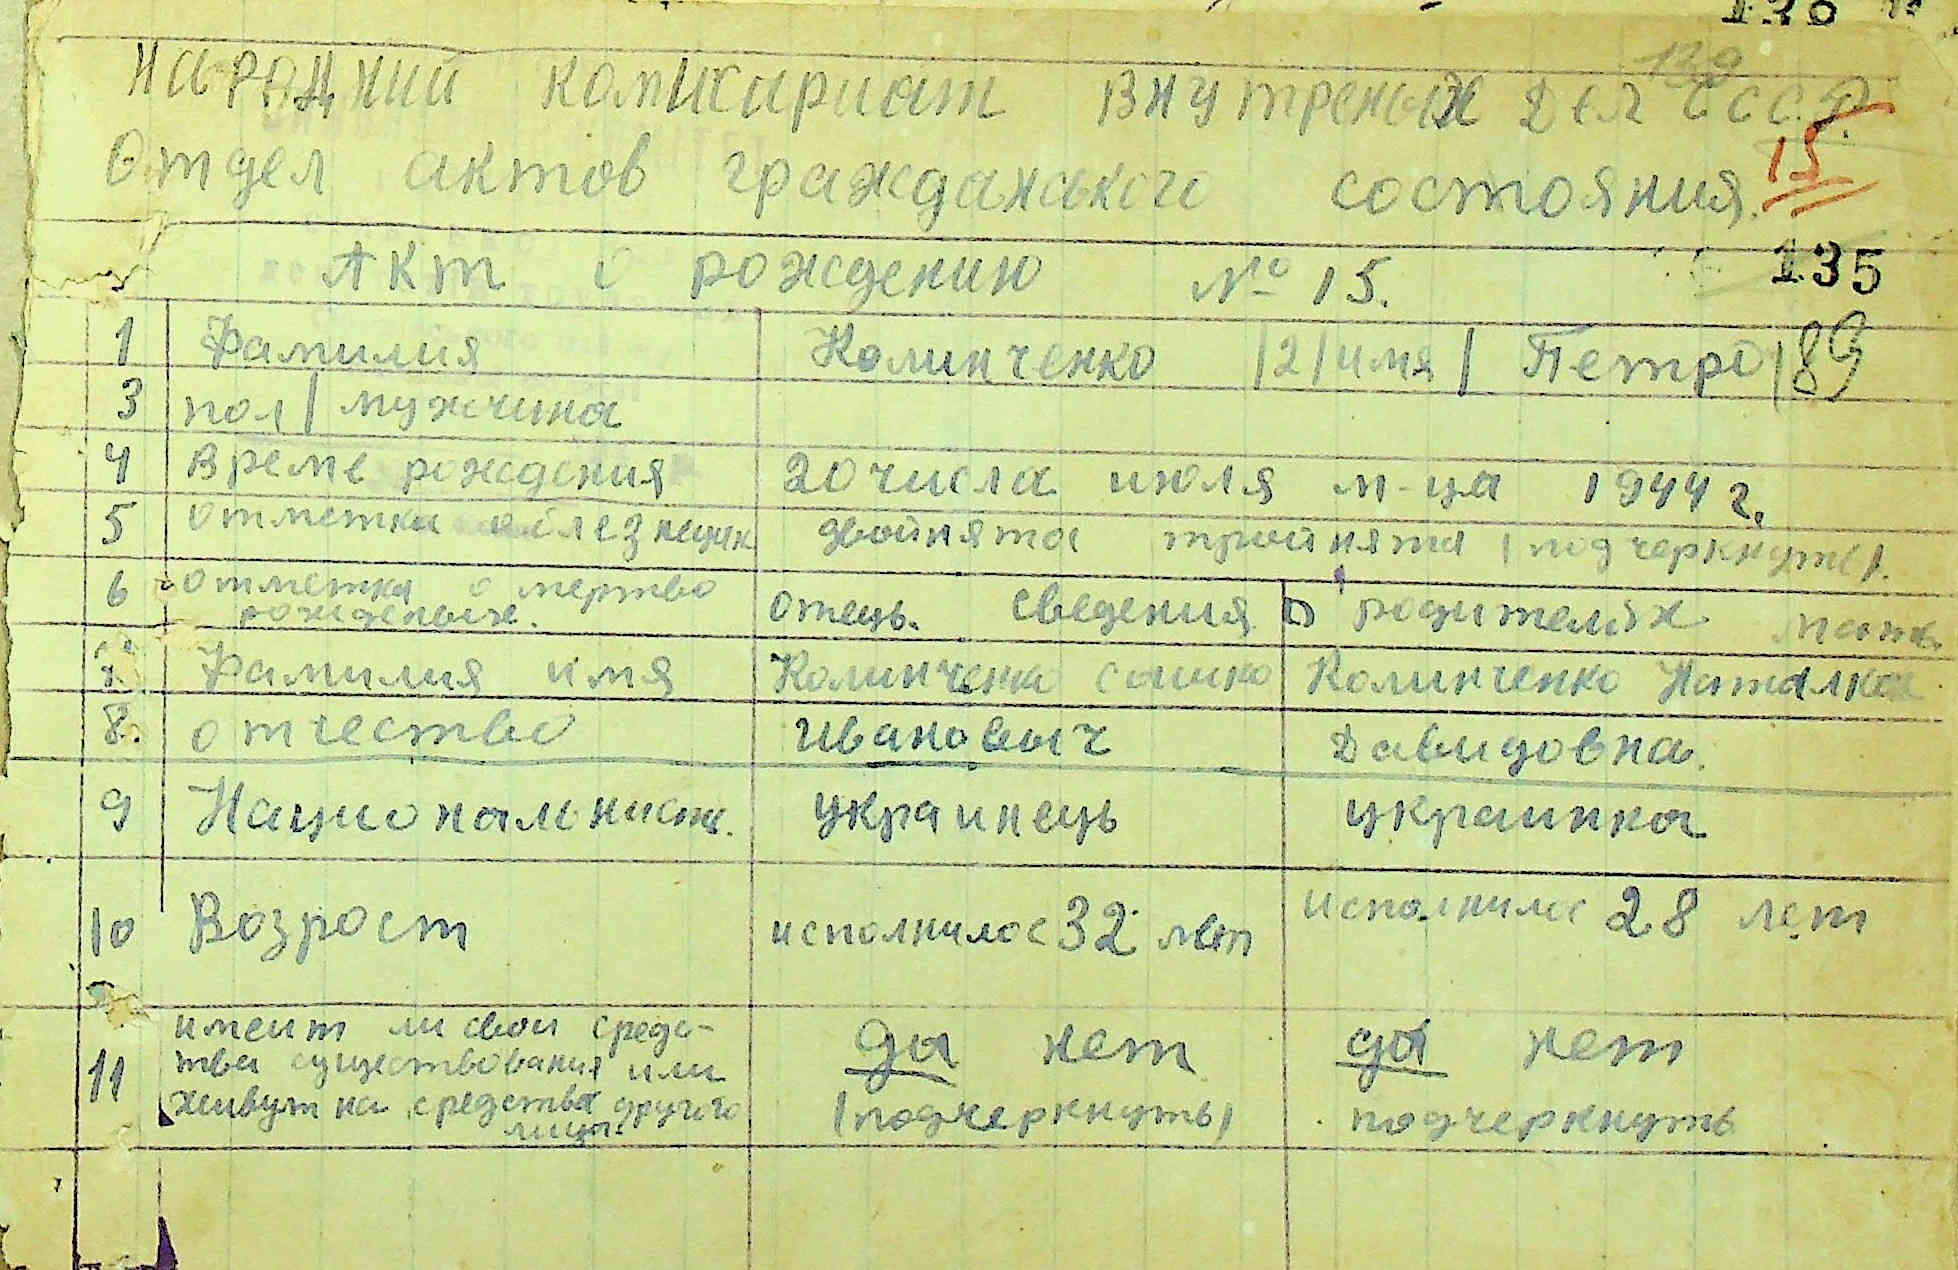 комисариат внутреных Дел С.С.С.Р.
15
Отдел актов гражданського состояния.
Акт о рождению № 15.
135
1 Фамилия Колинченко |2| имя | Петро | 89
3 пол | мужчина
4 Време рождения 20 числа июля м-ца 1944 г.
5 отметка двойнята тройнята (подчеркнуть).
6 отметка о мертво
рожденых. отець. сведения о родителях мать.
7. Фамилия имя Колинченко Сашко Колинченко Наталка
8. отчество Ивановыч Давидовна.
9 Национальность. украинець украинка
10 Возрост исполнилос 32 лет исполнилос 28 лет
11 имеит ли свои средс-
тва существования или
живут на средства другого
лица.
да нет да нет
(подчеркнуть) подчеркнуть